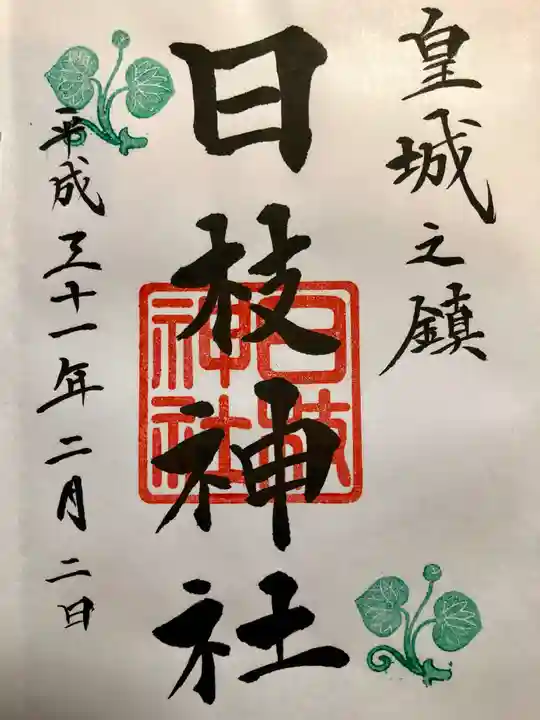 皇城之鎮
日枝神社
日枝
神社
平成三十一年二月二日